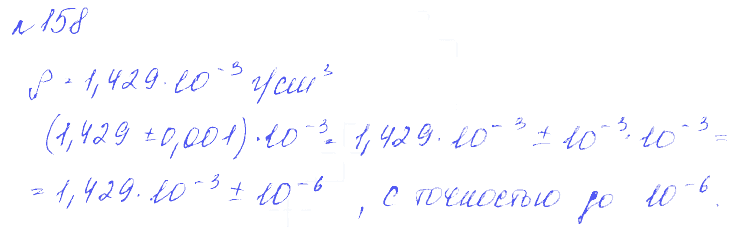 №158
ρ = 1,429·10⁻³ г/см³
(1,429 ± 0,001)·10⁻³ = 1,429·10⁻³ ± 10⁻³·10⁻³ =
= 1,429·10⁻³ ± 10⁻⁶ , с точностью до 10⁻⁶.